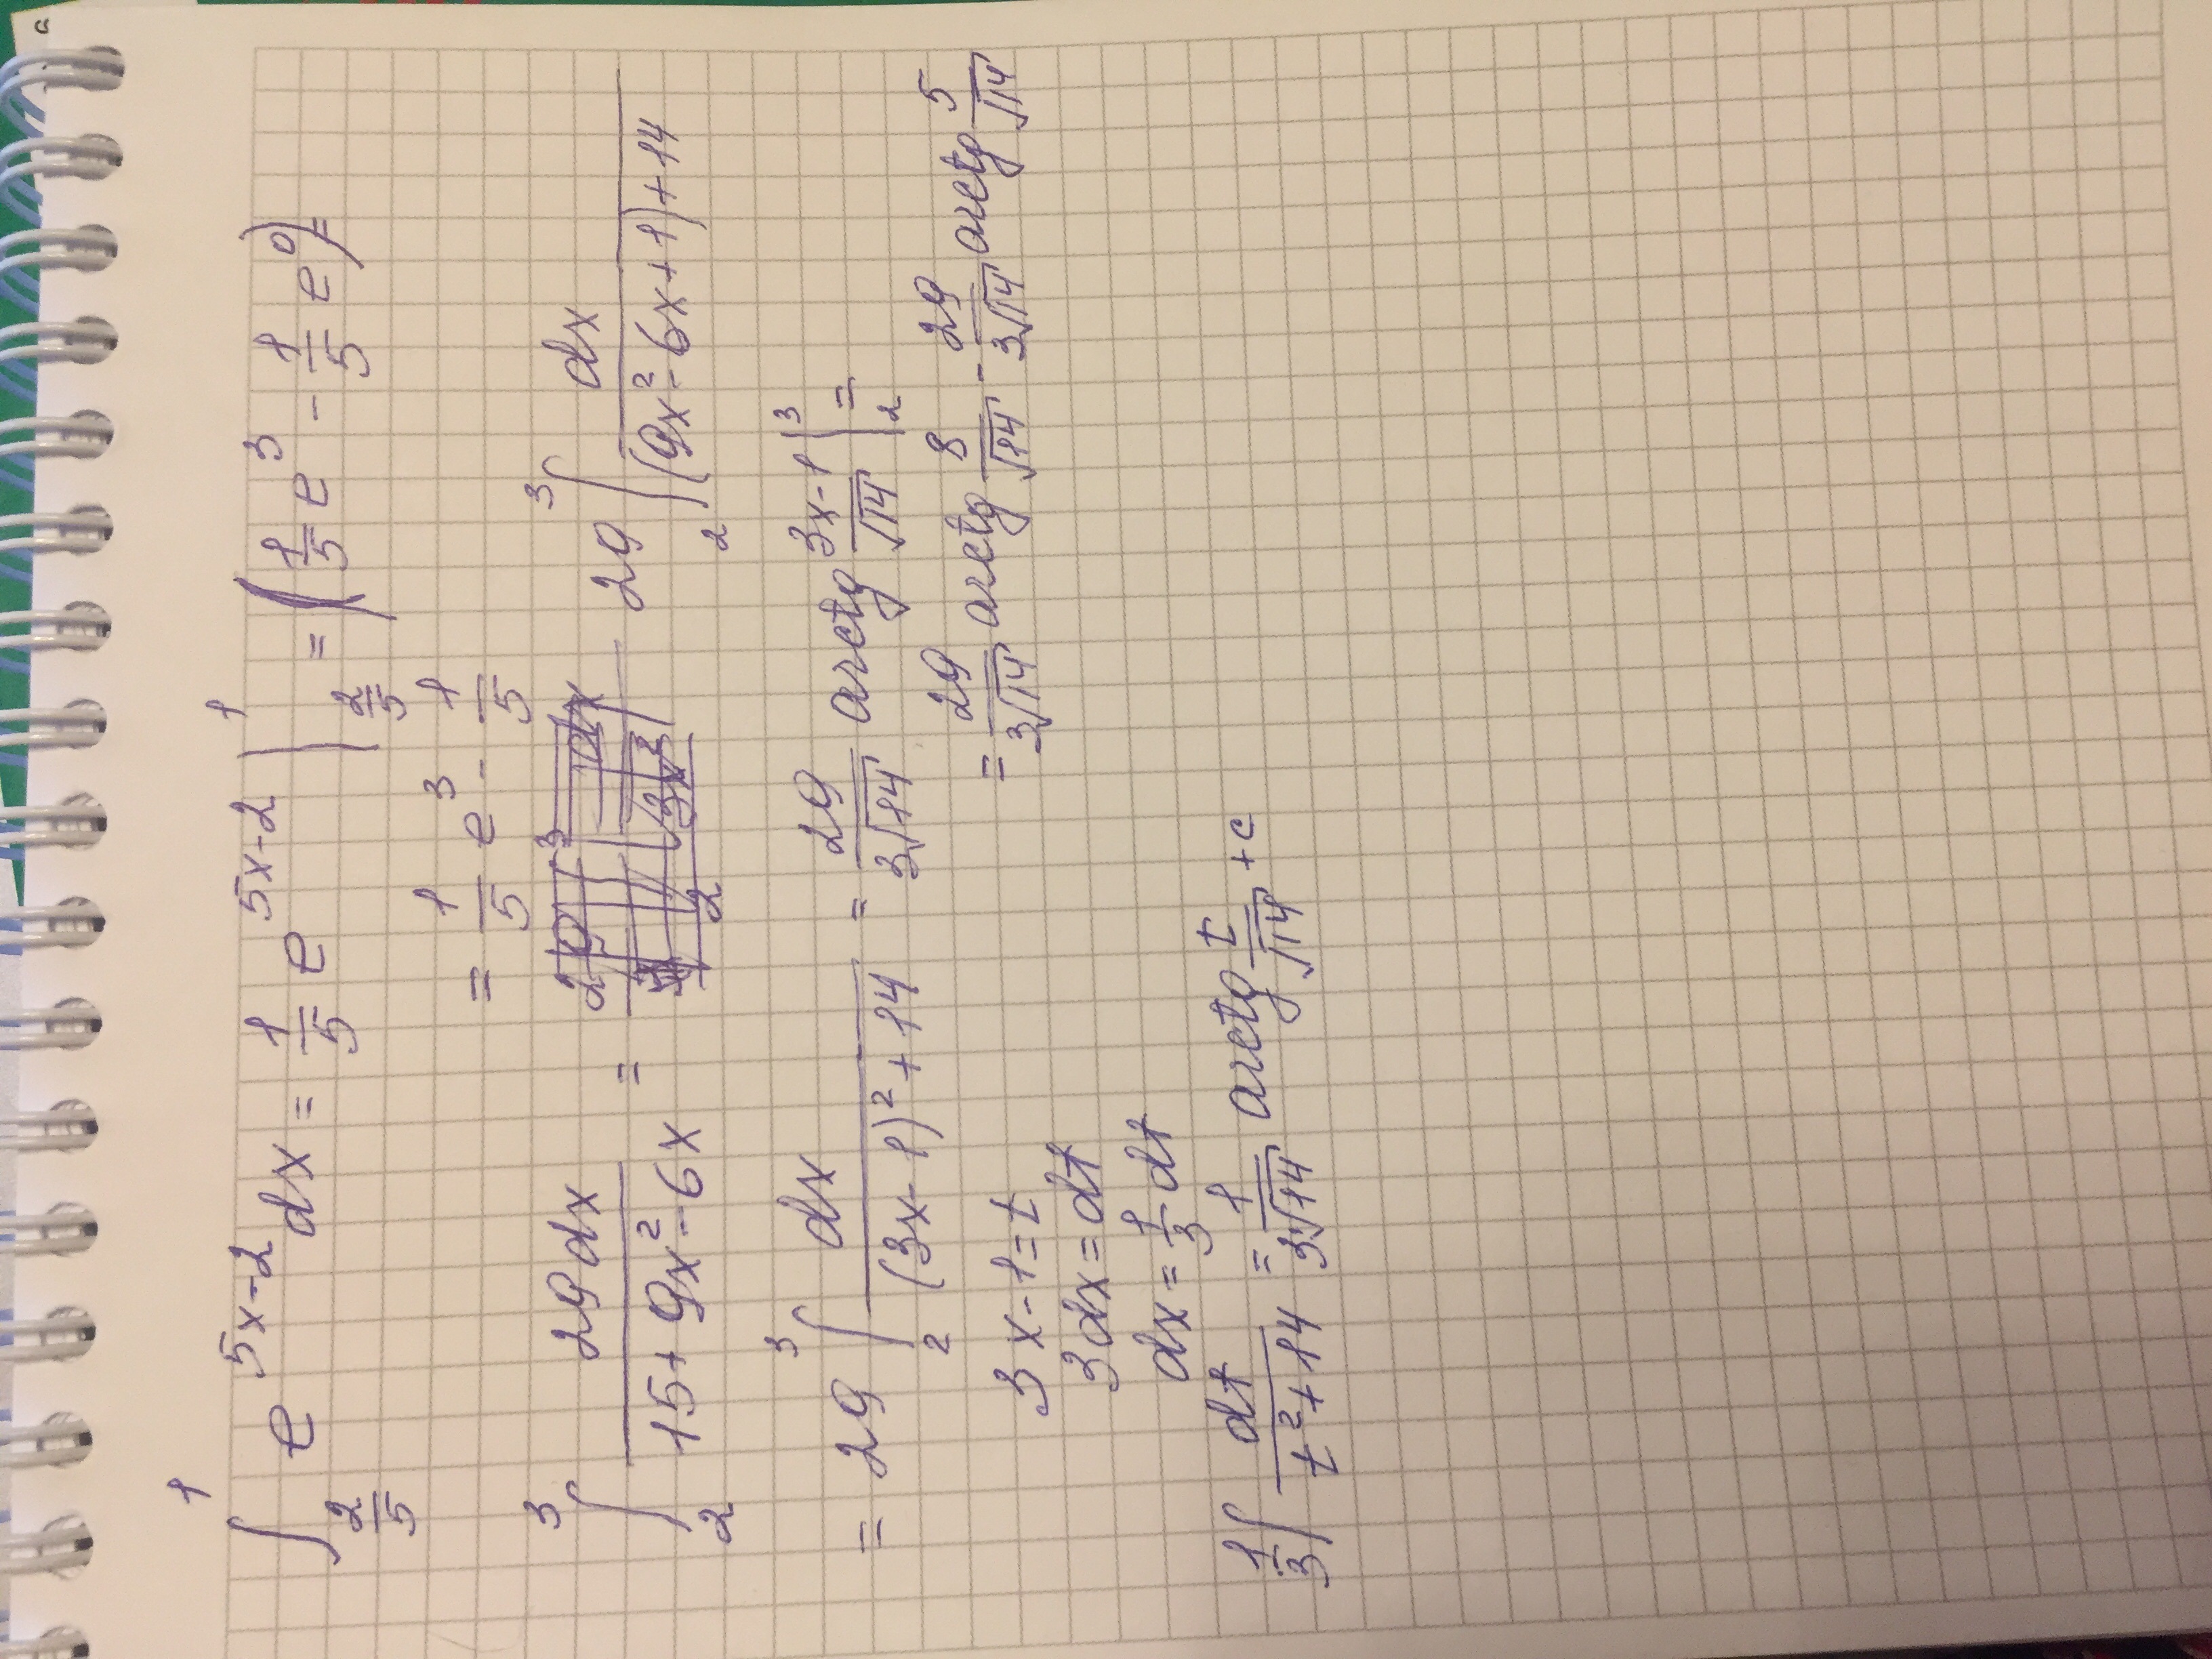 ∫_{2/5}^{1} e^{5x-2} dx = 1/5 e^{5x-2} |_{2/5}^{1} = (1/5 e^3 - 1/5 e^0) =
= 1/5 e^3 - 1/5
∫_2^3 29dx/(15+9x²-6x) = 29 ∫_2^3 dx/((9x²-6x+1)+14)
= 29 ∫_2^3 dx/((3x-1)²+14) = 29/(3√14) arctg (3x-1)/√14 |_2^3 =
= 29/(3√14) arctg 8/√14 - 29/(3√14) arctg 5/√14
3x-1=t
3dx=dt
dx=1/3 dt
1/3 ∫ dt/(t²+14) = 1/(3√14) arctg t/√14 +c